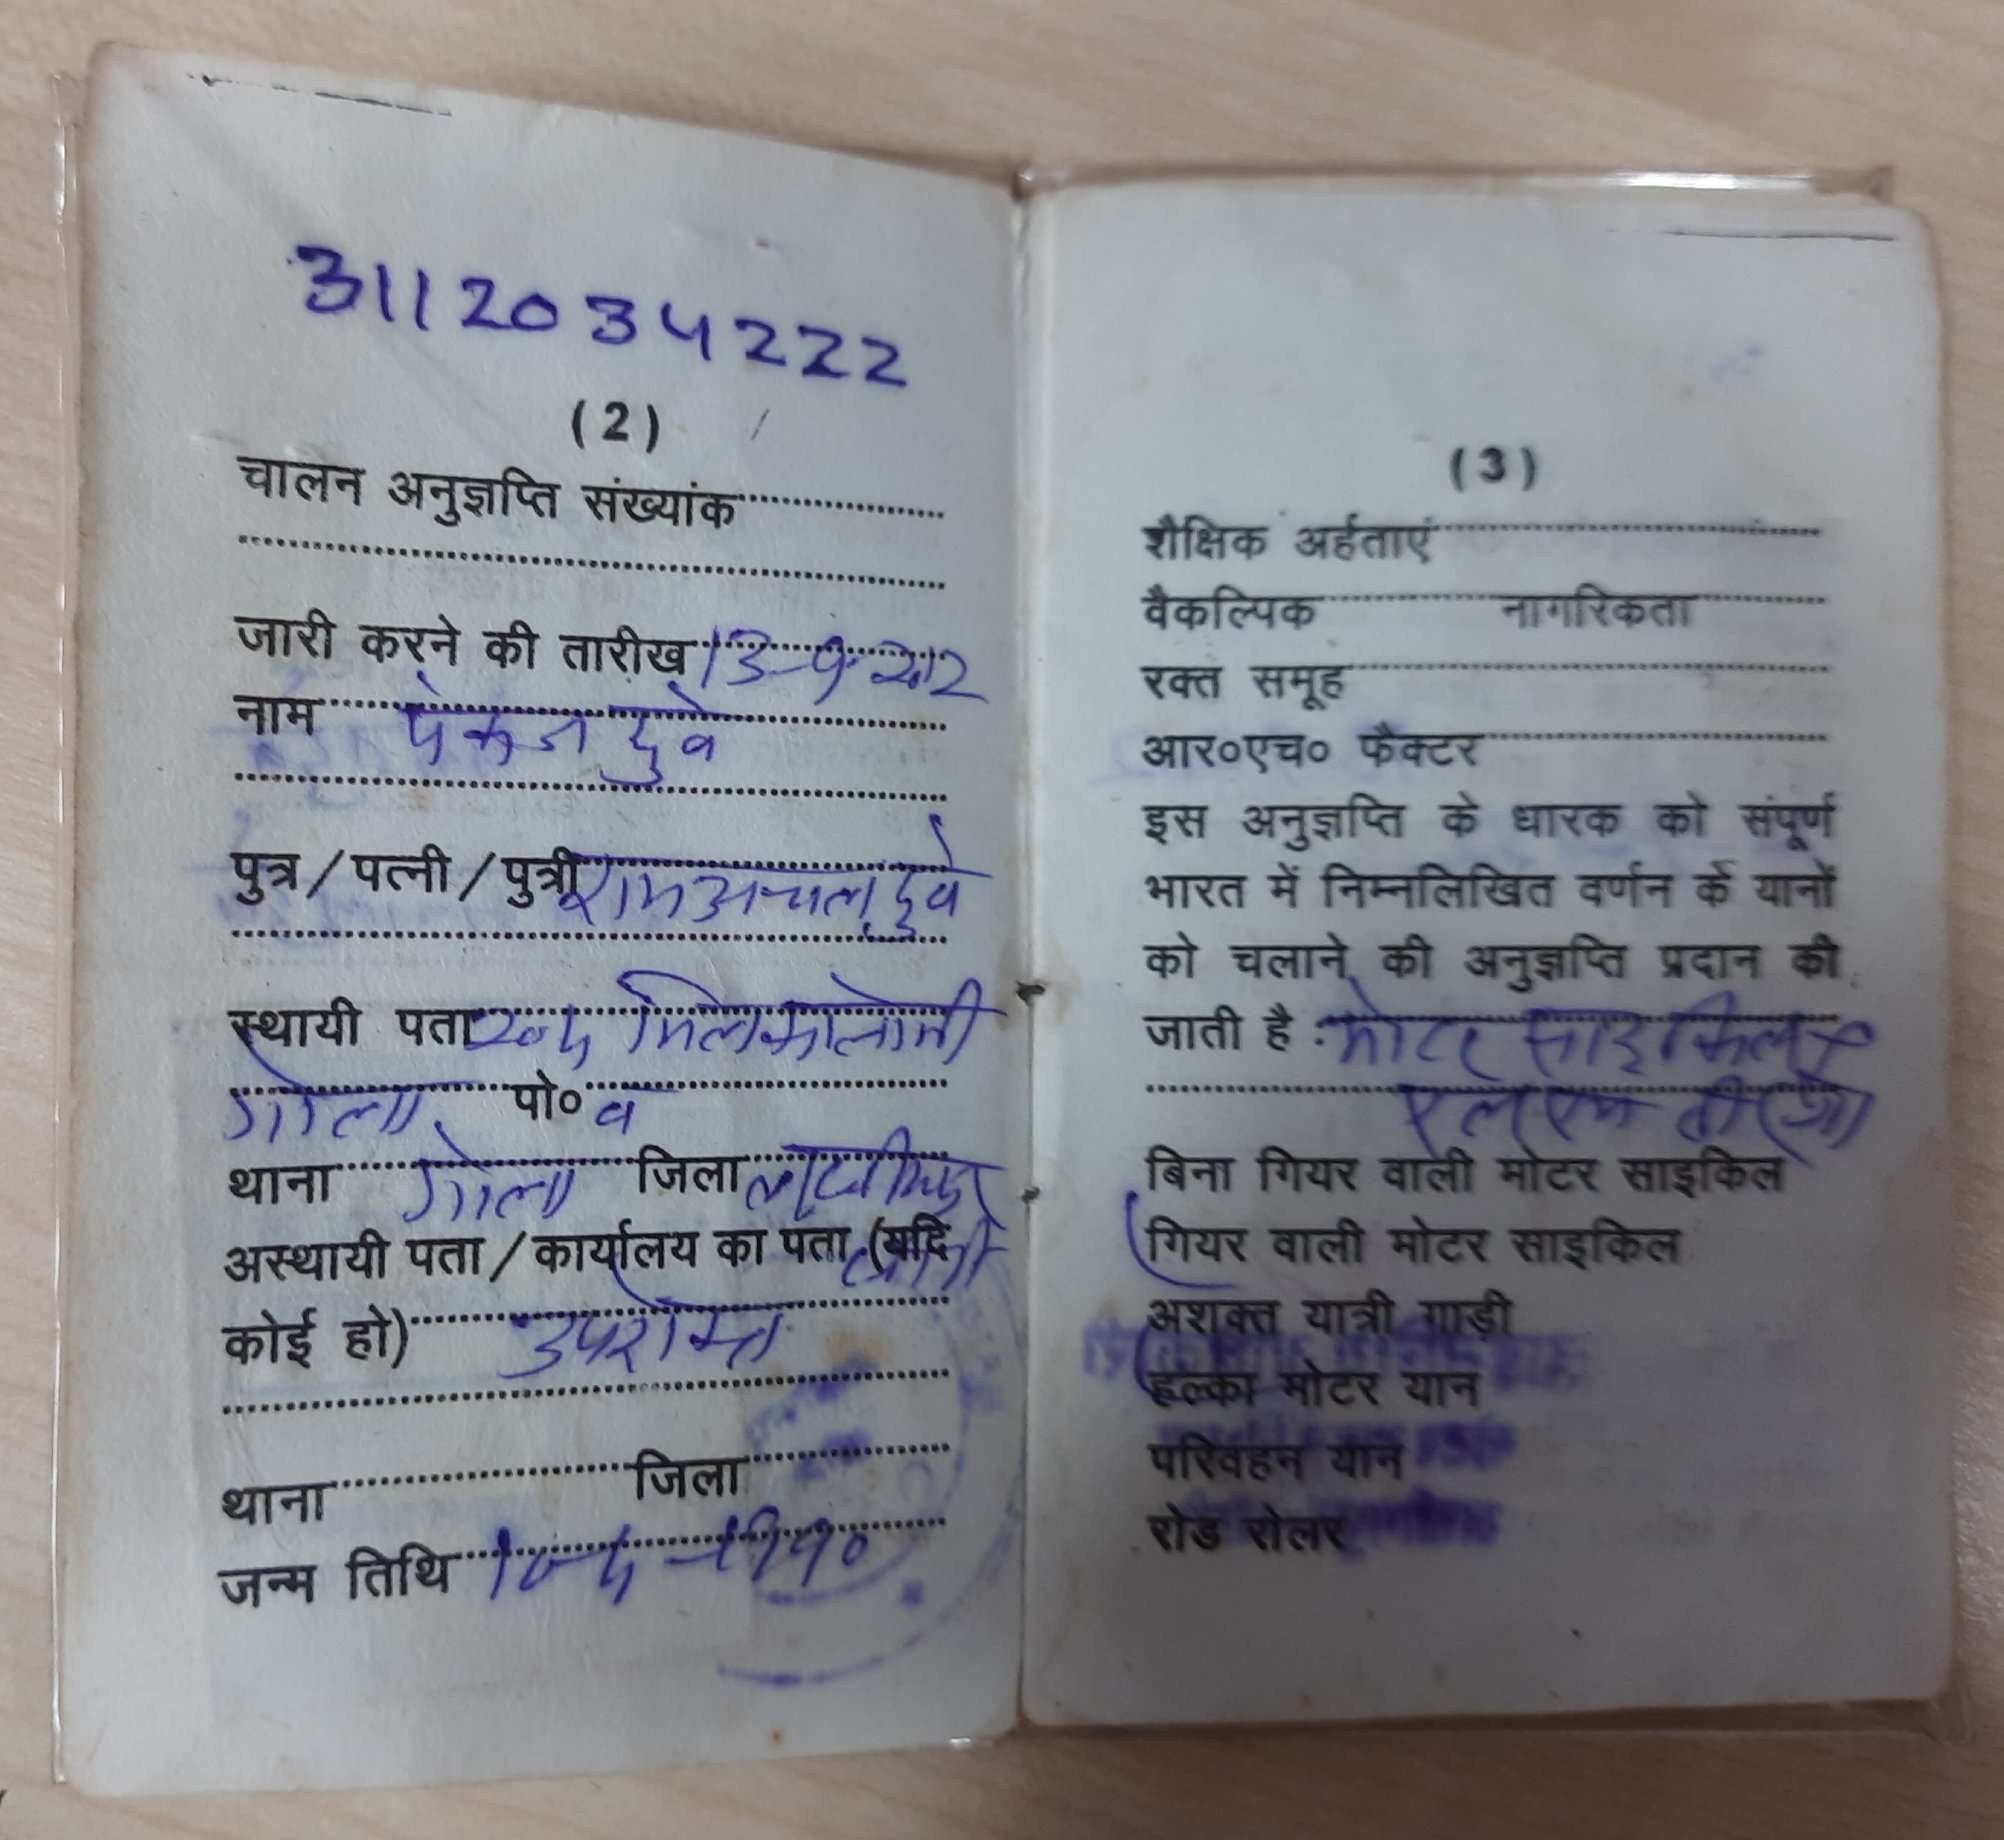 3112034222
(2)
चालन अनुज्ञप्ति संख्यांक
जारी करने की तारीख 13-9-2012
नाम पंकज दुबे
पुत्र/पत्नी/पुत्री रामअचल दुबे
स्थायी पता मिल कालोनी
गोला पो० व
थाना गोला जिला लखीमपुर
अस्थायी पता/कार्यालय का पता (यदि
कोई हो) उपरोक्त
थाना जिला
जन्म तिथि
(3)
शैक्षिक अर्हताएं
वैकल्पिक नागरिकता
रक्त समूह
आर०एच० फैक्टर
इस अनुज्ञप्ति के धारक को संपूर्ण
भारत में निम्नलिखित वर्णन के यानों
को चलाने की अनुज्ञप्ति प्रदान की
जाती है : मोटर साइकिल
एल एम वी
बिना गियर वाली मोटर साइकिल
गियर वाली मोटर साइकिल
अशक्त यात्री गाड़ी
हल्का मोटर यान
परिवहन यान
रोड रोलर